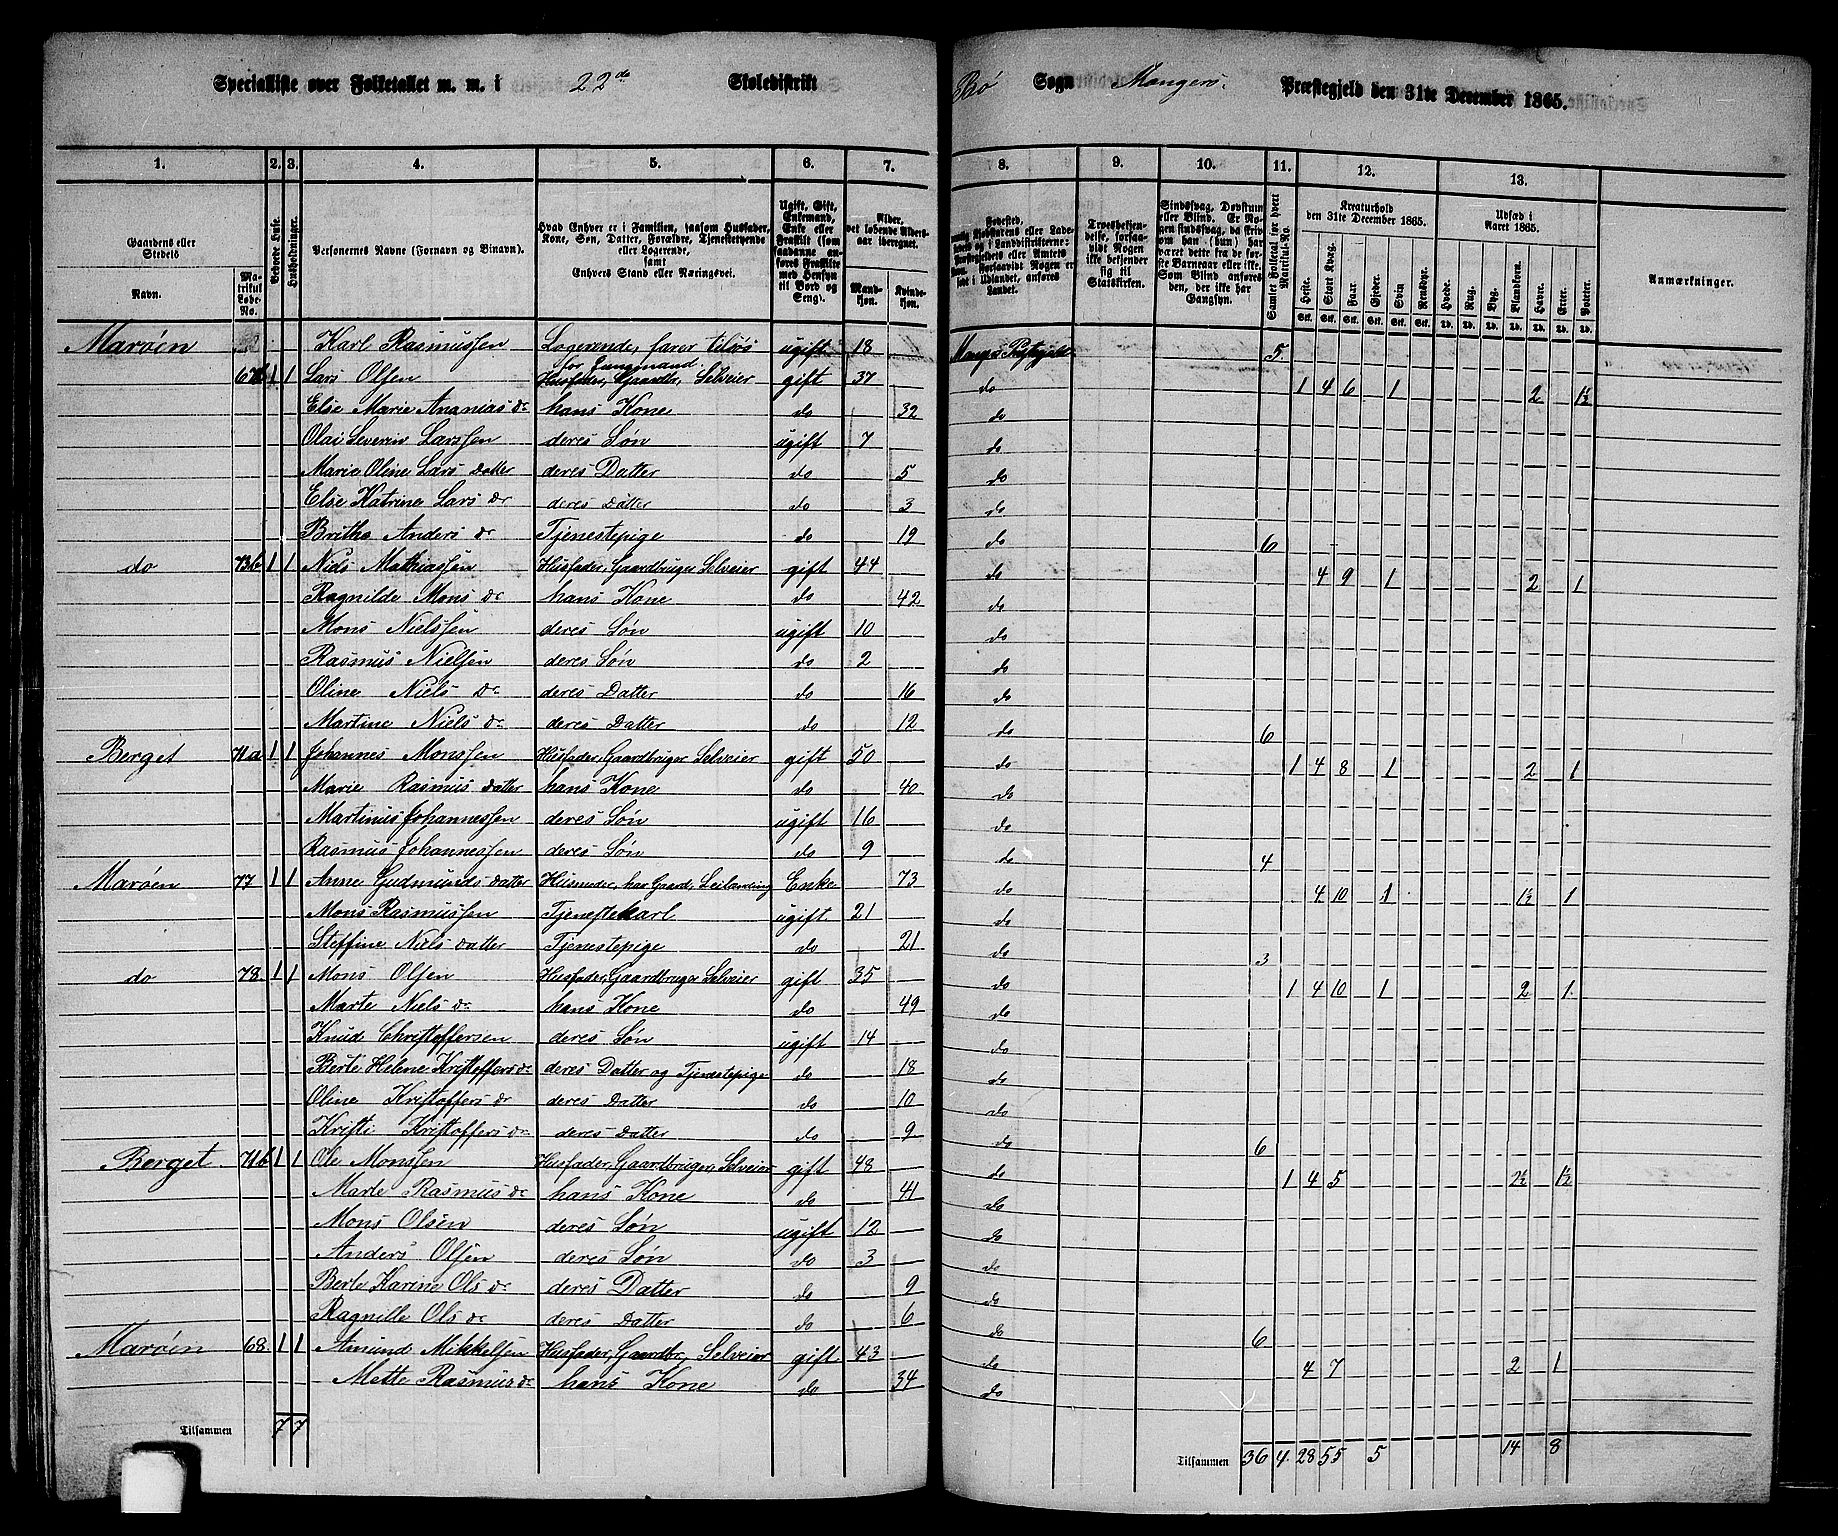 Specialliste over Folketallet m. m. i 22de Skoledistrikt Bø Sogn Mangers Præstegjeld den 31te December 1865.
1. 2. 3. 4. 5. 6. 7. 8. 9. 10. 11. 12. 13.
Gaardens eller Stedets
Navn.
Matrikul Løbe-No.
Beboede Huse.
Husholdninger.
Personernes Navne (Fornavn og Binavn).
Hvad Enhver er i Familien, saasom Husfader, Kone, Søn, Datter, Forældre, Tjenestetyende eller Logerende, samt Enhvers Stand eller Næringsvei.
Ugift, Gift, Enkemand, Enke eller Fraskilt (som saadanne anføres Fraskilte med Hensyn til Bord og Seng).
Alder, det løbende Aldersaar iberegnet.
Mandkjøn. Kvindekjøn.
Troesbekjendelse, forsaavidt Nogen ikke bekjender sig til Statskirken.
Sindssvag, Døvstum eller Blind. Er Nogen sindssvag, da skrives om han (hun) har været dette fra de første Barneaar eller ikke. Som Blind anføres den, der ikke har Gangsyn.
Samlet Folketal for hvert Matrikul-No.
Kreaturhold den 31te December 1865.
Heste. Stort Kvæg. Faar. Gjeder. Svin. Rensdyr.
Udsæd i Aaret 1865.
Hvede. Rug. Byg. Blandkorn. Havre. Erter. Poteter.
Anmærkninger.
Marøen Karl Rasmussen Logerende, farer tilsøs for Jungmand ugift 18 5.
1 1 Lars Olsen Husfader, Gaardbr, Selveier gift 37 do 1 4 6 1 2 1½
Else Marie Ananias Dr hans Kone do 32 do
Olai Severin Larssen deres Søn ugift 7 do
Marie Oline Lars Datter deres Datter do 5 do
Else Katrine Lars Dr deres Datter do 3 do
Britha Anders Dr Tjenestepige do 19 do 6
do 73b 1 1 Niels Mathiassen Husfader, Gaardbruger Selveier gift 44 do 4 9 1 2 1
Ragnilde Mons Dr hans Kone do 42 do
Mons Nielssen deres Søn ugift 10 do
Rasmus Nielsen deres Søn do 2 do
Oline Niels Dr deres Datter do 16 do
Martine Niels Dr deres Datter do 12 do 6
Berget 71a 1 1 Johannes Monssen Husfader, Gaardbruger Selveier gift 50 do 1 4 8 1 2 1
Marie Rasmus Datter hans Kone do 40 do
Martinus Johannessen deres Søn ugift 16 do
Rasmus Johannessen deres Søn do 9 do 4
Marøen 77 1 1 Anne Gudmunds Datter Husmoder, har Gaard, Leilænding Enke 73 do 4 10 1 1½ 1
Mons Rasmussen Tjenestekarl ugift 21 do
Steffine Niels Datter Tjenestepige do 21 do 3
do 78 1 1 Mons Olsen Husfader, Gaardbruger Selveier gift 35 do 1 4 10 1 2 1.
Marte Niels Dr hans Kone do 49 do
Knud Christoffersen deres Søn ugift 14 do
Berte Helene Kristoffers Dr deres Datter og Tjenestepige do 18 do
Oline Kristoffers Dr deres Datter do 10 do
Kristi Kristoffers Dr deres Datter do 9 do 6
Berget 71b 1 1 Ole Monssen Husfader, Gaardbruger, Selveier gift 48 do 1 4 5 2½ 1½
Marte Rasmus Dr hans Kone do 41 do
Mons Olsen deres Søn ugift 12 do
Anders Olsen deres Søn do 3 do
Berte Karine Ols Dr deres Datter do 9 do
Ragnille Ols Dr deres Datter do 6 do 6
Marøen 68 1 1 Amund Mikkelsen Husfader, Gaardbr, Selveier gift 43 do 4 7 2 1
Mette Rasmus Dr hans Kone do 34 do
Tilsammen 7 7 Tilsammen 36 4. 28 55 5 14 8